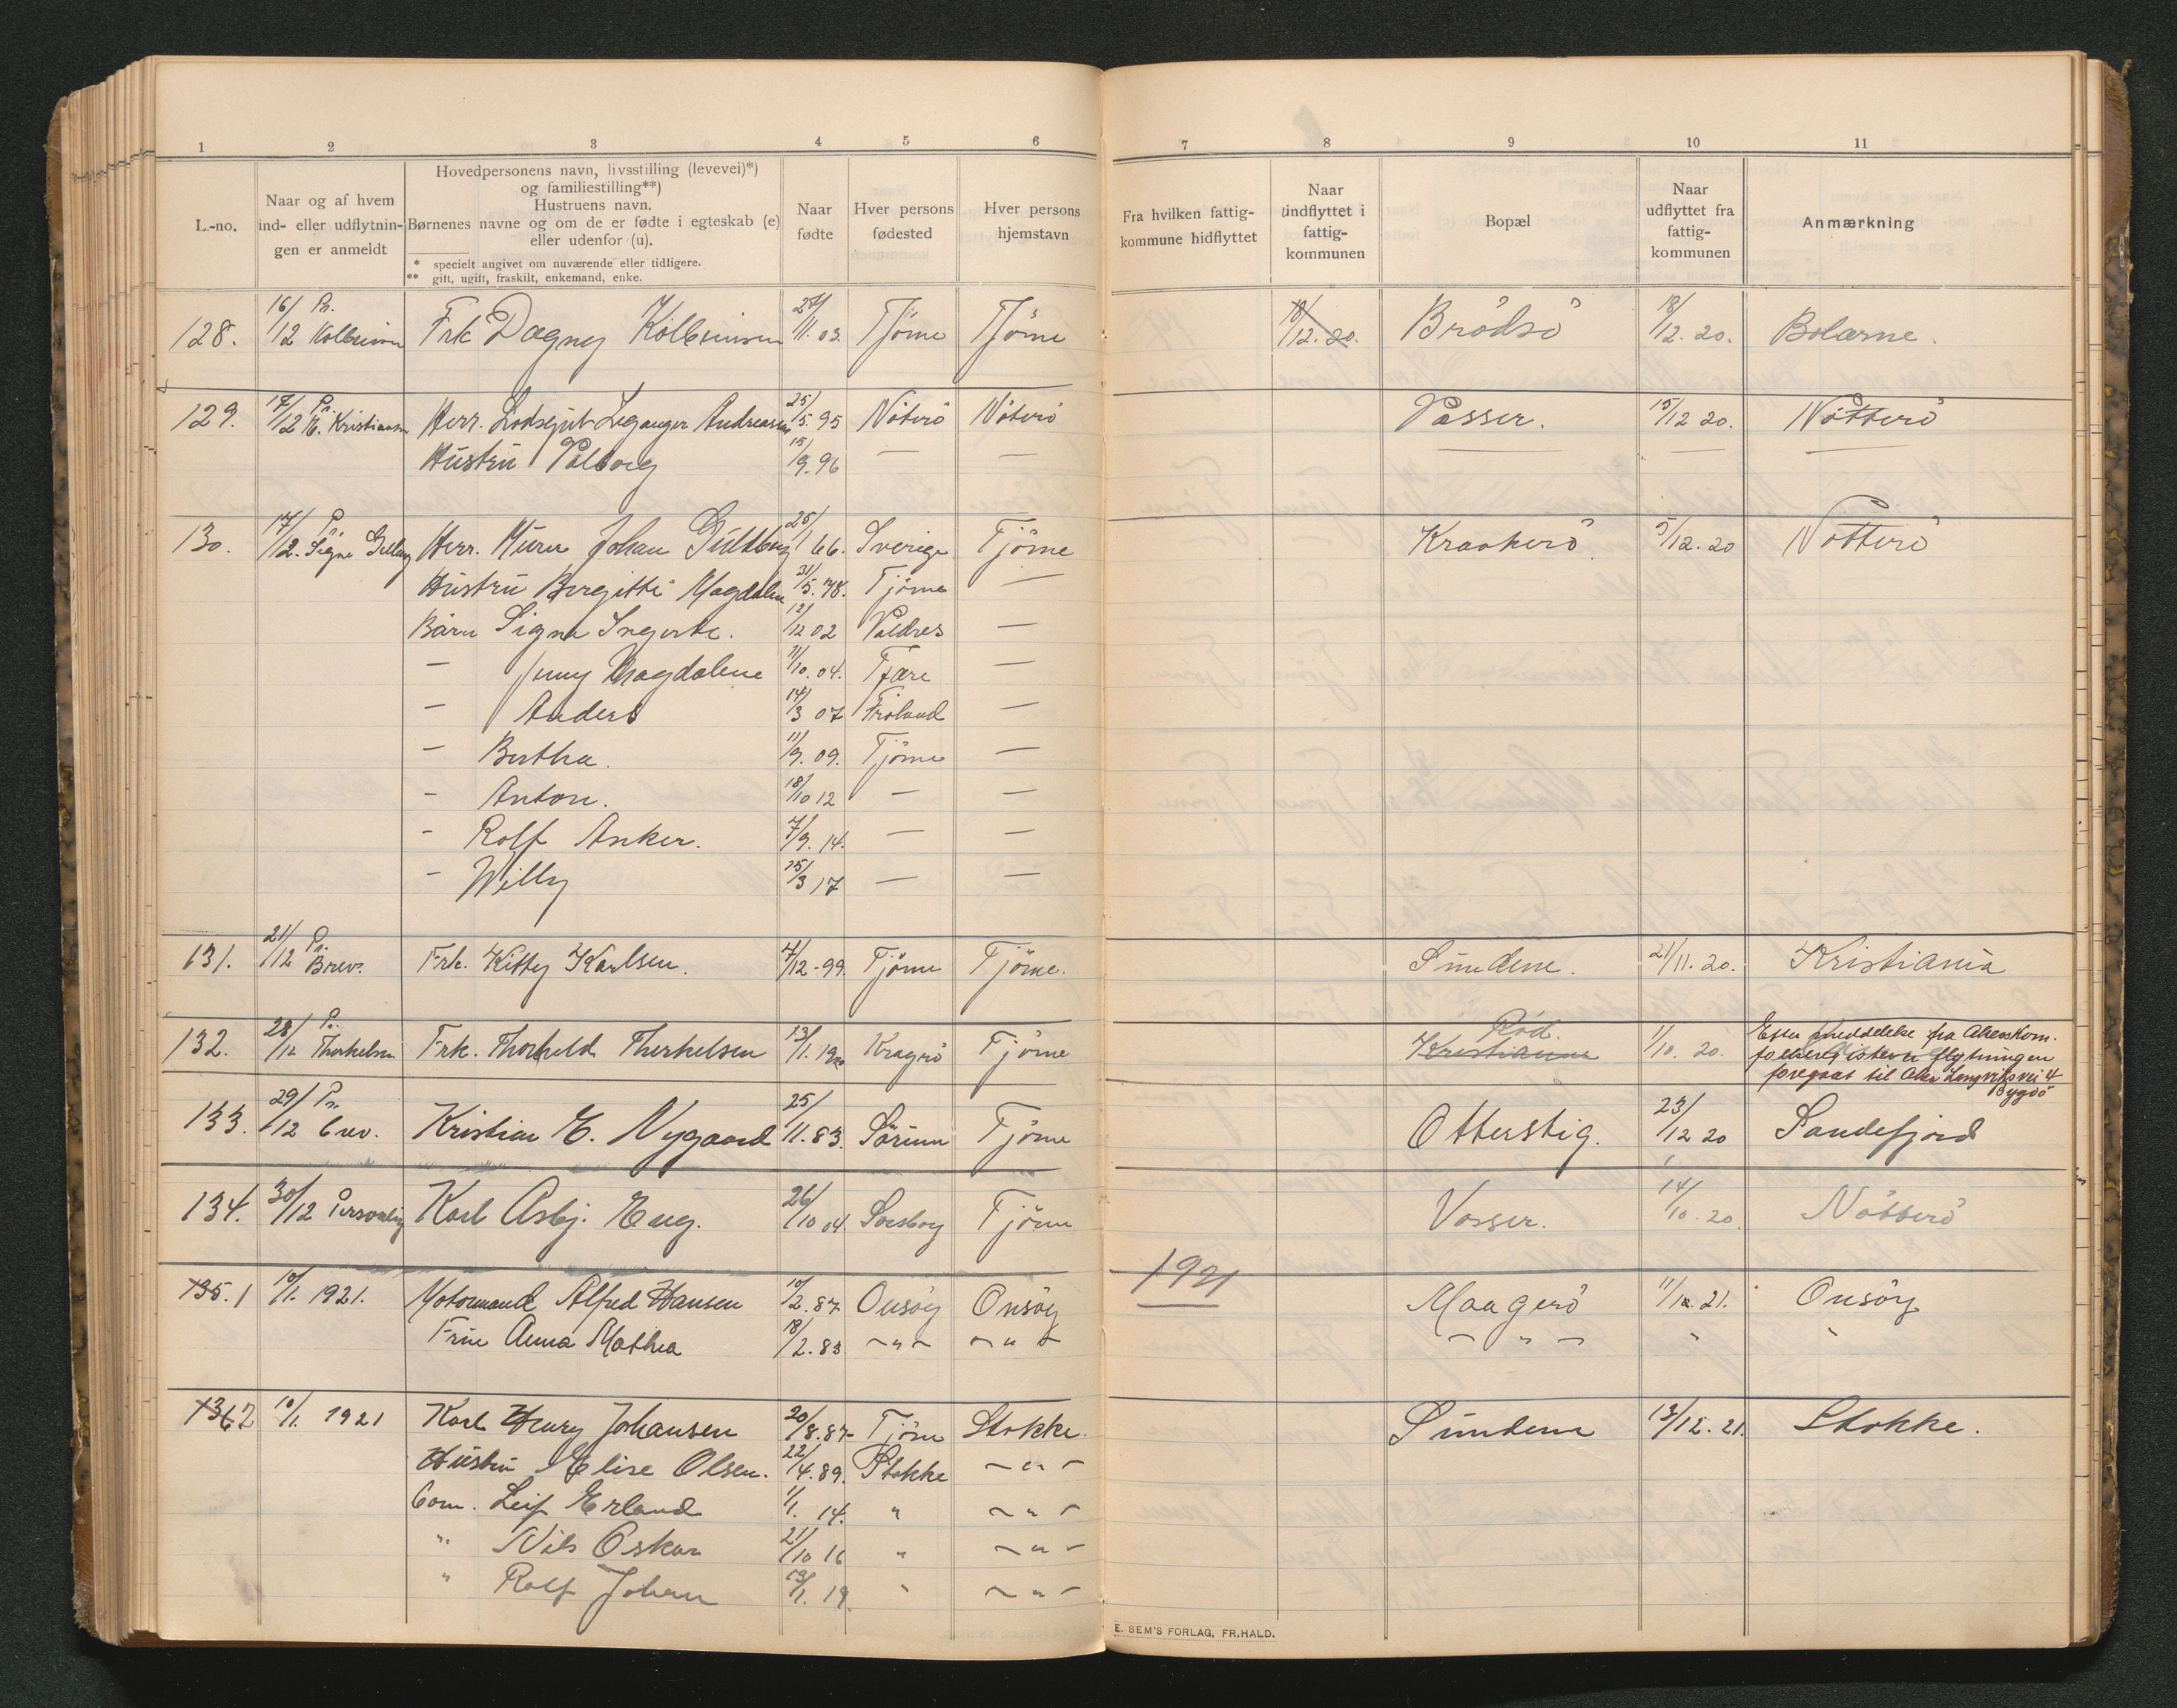 1 2 3 4 5 6 7 8 9 10 11
L.-no.
Naar og af hvem
ind- eller udflytnin-
gen er anmeldt
Hovedpersonens navn, livsstilling (levevei)*)
og familiestilling**)
Hustruens navn.
Børnenes navne og om de er fødte i egteskab (e)
eller udenfor (u).
* specielt angivet om nuværende eller tidligere.
** gift, ugift, fraskilt, enkemand, enke.
Naar
fødte
Hver persons
fødested
Hver persons
hjemstavn
Fra hvilken fattig-
kommune hidflyttet
Naar
indflyttet i
fattig-
kommunen
Bopæl
Naar
udflyttet fra
fattig-
kommunen
Anmærkning
128. 16/12 Pr. Frk Dagny 11.03 Tjöme Tjöme 18/12.20. Brödsö 18/12.20. Bolærne.
129. 17/12 Pr. K. Kristiansen Herr. Andreasen 25/5.95 Nöterö Nöterö Vasser. 15/12 20. Nötterö
Hustru Valborg 15/9.96 — — — — —
130. 17/12. Pr. Signe Herr. Johan 25/1 66. Sverige Tjöme Kraakerö 5/12.20 Nötterö
Hustru Birgitte Magdalene 31/5.78. Tjöme —
Barn Signe 12/12 02 Valdres —
— Jenny Magdalene 11/10.04. Fjære —
— Anders 14/3 07 Froland —
— Bertha. 11/9.09. Tjöme —
- Anton. 18/10 12 — —
- Rolf Anker. 7/9.14. — —
- Willy 25/3 17 — —
131. 21/12 Pr. Brev. Frk. Kitty Karlsen. 7/12-99. Tjöme Tjöme. Sundene. 21/11.20. Kristiania
132. 28/12 Pr. Thorkelsen Frk. Thorhild Thorkelsen 13/1. Kragerö Tjöme Röd. Kristiania 1/10.20. Efter meddelelse fra Akers kom.
folkeregister er flytningen
foregaat til Aker Langviksvei 4
Bygdö
133. 29/12 Pr. brev. Kristian E. Nygaard 25/11.83. Sörum Tjöme Otterstig. 23/12 20 Sandefjord
134. 30/12 Personlig Karl Asbj. Eng. 26/10 04. Sarsborg Tjöme Vasser. 14/10.20. Nötterö
1921
135. 1 10/1. 1921. Motormand Alfred Hansen 10/2.87 Onsöy Onsöy Maagerö 21. Onsöy
Frue Anna Mathea 18/2.83 -"- -"- -"- " "
136 2 10/1. 1921 Karl Henry Johansen 20/8.87- Tjöme Stokke. Sundene 13/12.21. Stokke.
Hustru Elise Olsen. 22/4.89. Stokke -"-
Leif Erland 1/1. 14. " -"-
" Nils Oskar 21/10 16 " -"-
" Rolf Johan 19/1. 19. " -"-
E. SEM'S FORLAG, FR.HALD.